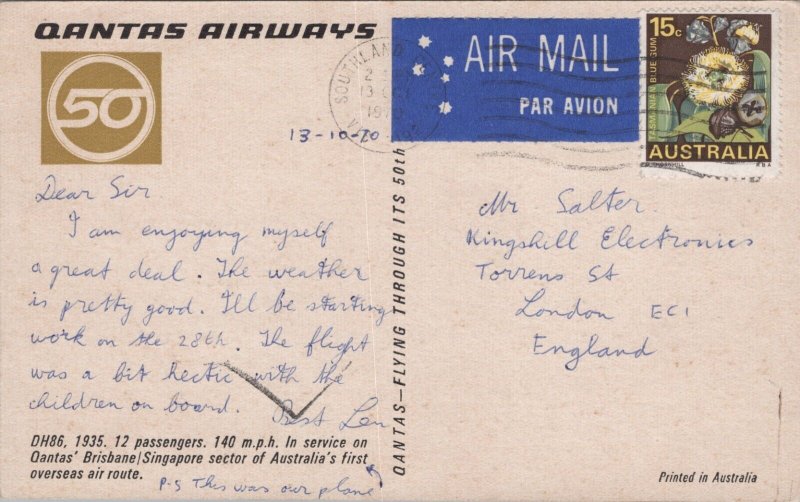 QANTAS AIRWAYS
50
AIR MAIL
PAR AVION
15c
TASMANIAN BLUE GUM
AUSTRALIA
SOUTHLAND
2
13
1970
13-10-70
Dear Sir.
I am enjoying myself
a great deal. The weather
is pretty good. I'll be starting
work on the 28th. The flight
was a bit hectic with the
children on board. Best Len
DH86, 1935. 12 passengers. 140 m.p.h. In service on
Qantas' Brisbane/Singapore sector of Australia's first
overseas air route.
P-S This was our plane
QANTAS—FLYING THROUGH ITS 50th
Mr. Salter.
Kingshill Electronics
Torrens St
London EC1
England
Printed in Australia